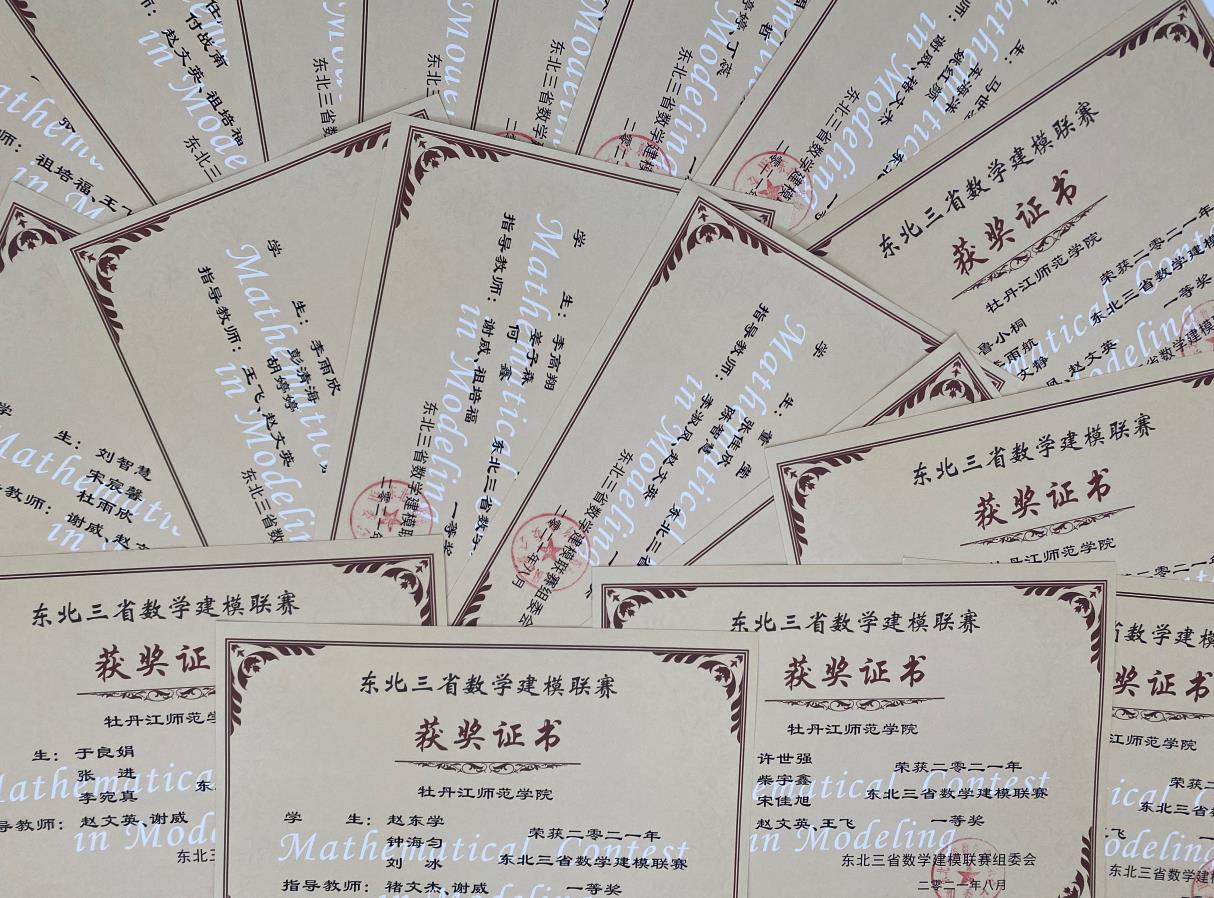 任
付战南
赵文英、祖培福
东北三
张
师：祖培福、王飞
东北三省数
东北三
东北三省数学
丁宬
东北三省数学建模
二零二一
师：谢威、褚文杰
姚红颜
东北三省数学建模
二零二一
生：马世
车海洋
东北三省数学建模联赛
获奖证书
牡丹江师范学院
鲁小桐
李雨航
文静
赵文英
荣获二零二一年
东北三省数学建模
一等奖
学 生：李雨欣
彭清海
胡婷婷
指导教师：王飞、赵文英
东北三省数
Mathematical
in Modeling
学 生：李富翔
姜子森
何 鑫
指导教师：谢威、祖培福
东北三省数学
一等奖
东北三省数学建模联
二零二一
Mathematical
in Modeling
学 生：董 莹
张佳欣
陈省慧
指导教师：李淑凤、赵文英
东北三省
东北三省数学建模联赛组委会
二零二一年八月
Mathematical
in Modeling
学 生：刘智慧
宋宸馨
杜雨欣
教师：谢威、赵
Mathematic
in Modeli
东北三省数学建模联赛
获奖证书
牡丹江师范学院
二零二一年
东北三省数学建模联赛
获奖证
牡丹江师范学
生：于良娟
张 进
李宛真
导教师：赵文英、谢威
东北三
Mathematica
in Model
东北三省数学建模联赛
获奖证书
牡丹江师范学院
学 生：赵东学
钟海匀
刘 冰
指导教师：褚文杰、谢威
荣获二零二一年
东北三省数学建模联赛
一等奖
Mathematical Contest
in Modeling
东北三省数学建模联赛
获奖证书
牡丹江师范学院
许世强
柴宇鑫
宋佳旭
赵文英、王飞
荣获二零二一年
东北三省数学建模联赛
一等奖
东北三省数学建模联赛组委会
二零二一年八月
ematical Contest
in Modeling
省数学建模
奖证书
江师范学院
荣获二
东北三省数
一等
东北三省数学建